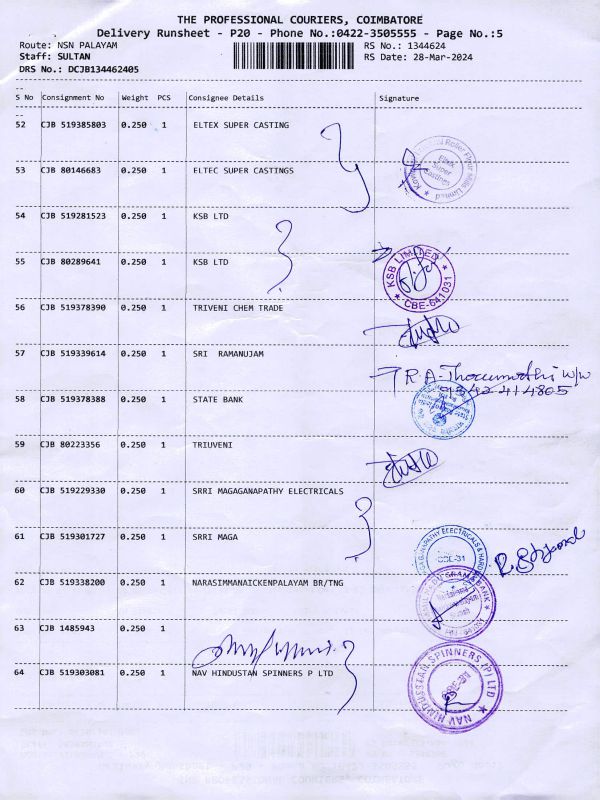 THE PROFESSIONAL COURIERS, COIMBATORE
Delivery Runsheet - P20 - Phone No.:0422-3505555 - Page No.:5
Route: NSN PALAYAM RS No.: 1344624
Staff: SULTAN RS Date: 28-Mar-2024
DRS No.: DCJB134462405
S No Consignment No Weight PCS Consignee Details Signature
52 CJB 519385803 0.250 1 ELTEX SUPER CASTING
53 CJB 80146683 0.250 1 ELTEC SUPER CASTINGS
Roller Flour Mills Limited
Eltek Super Castings
54 CJB 519281523 0.250 1 KSB LTD
55 CJB 80289641 0.250 1 KSB LTD
KSB LIMITED
CBE-641031
56 CJB 519378390 0.250 1 TRIVENI CHEM TRADE
57 CJB 519339614 0.250 1 SRI RAMANUJAM
R.A-Thoccumathi w/w
58 CJB 519378388 0.250 1 STATE BANK
59 CJB 80223356 0.250 1 TRIUVENI
60 CJB 519229330 0.250 1 SRRI MAGAGANAPATHY ELECTRICALS
61 CJB 519301727 0.250 1 SRRI MAGA
GANAPATHY ELECTRICALS & HARD
CBE-31
62 CJB 519338200 0.250 1 NARASIMMANAICKENPALAYAM BR/TNG
63 CJB 1485943 0.250 1
64 CJB 519303081 0.250 1 NAV HINDUSTAN SPINNERS P LTD
NAV HINDUSTAN SPINNERS (P) LTD
CBE-31